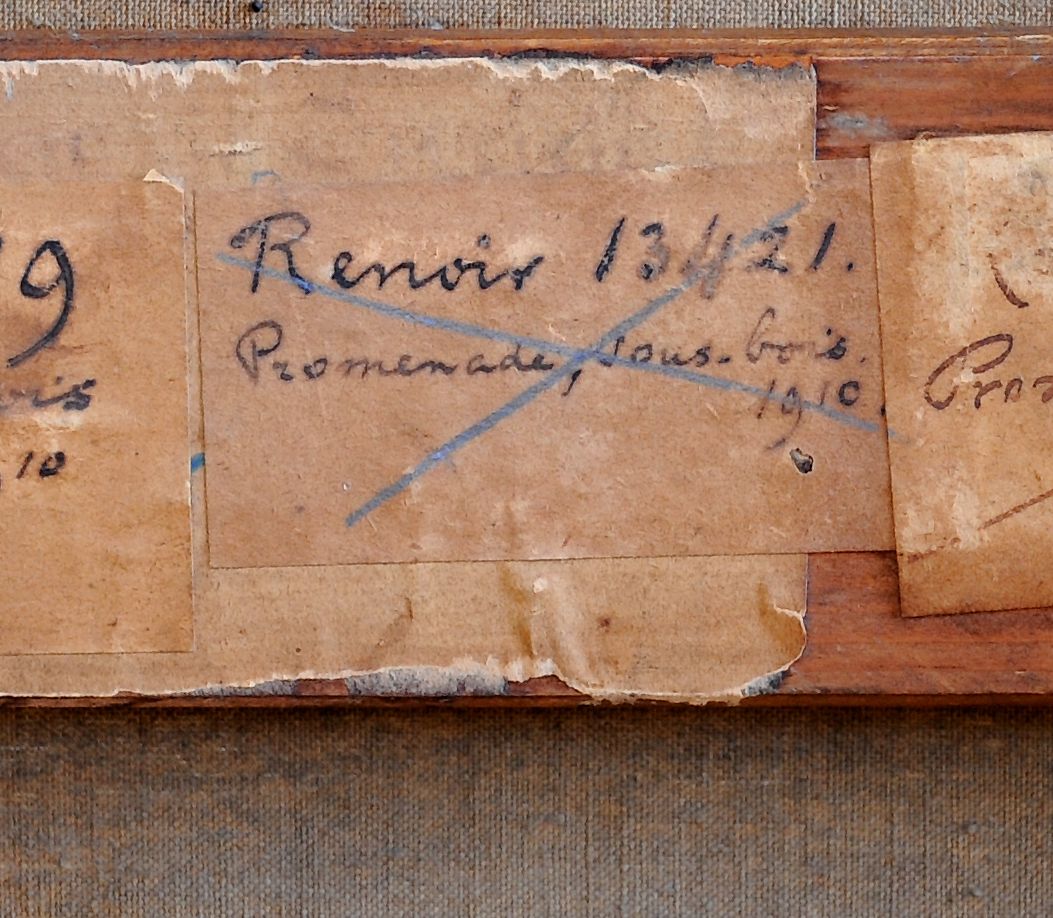 9
Renoir 13421.
Promenade, sous-bois.
1910.
10